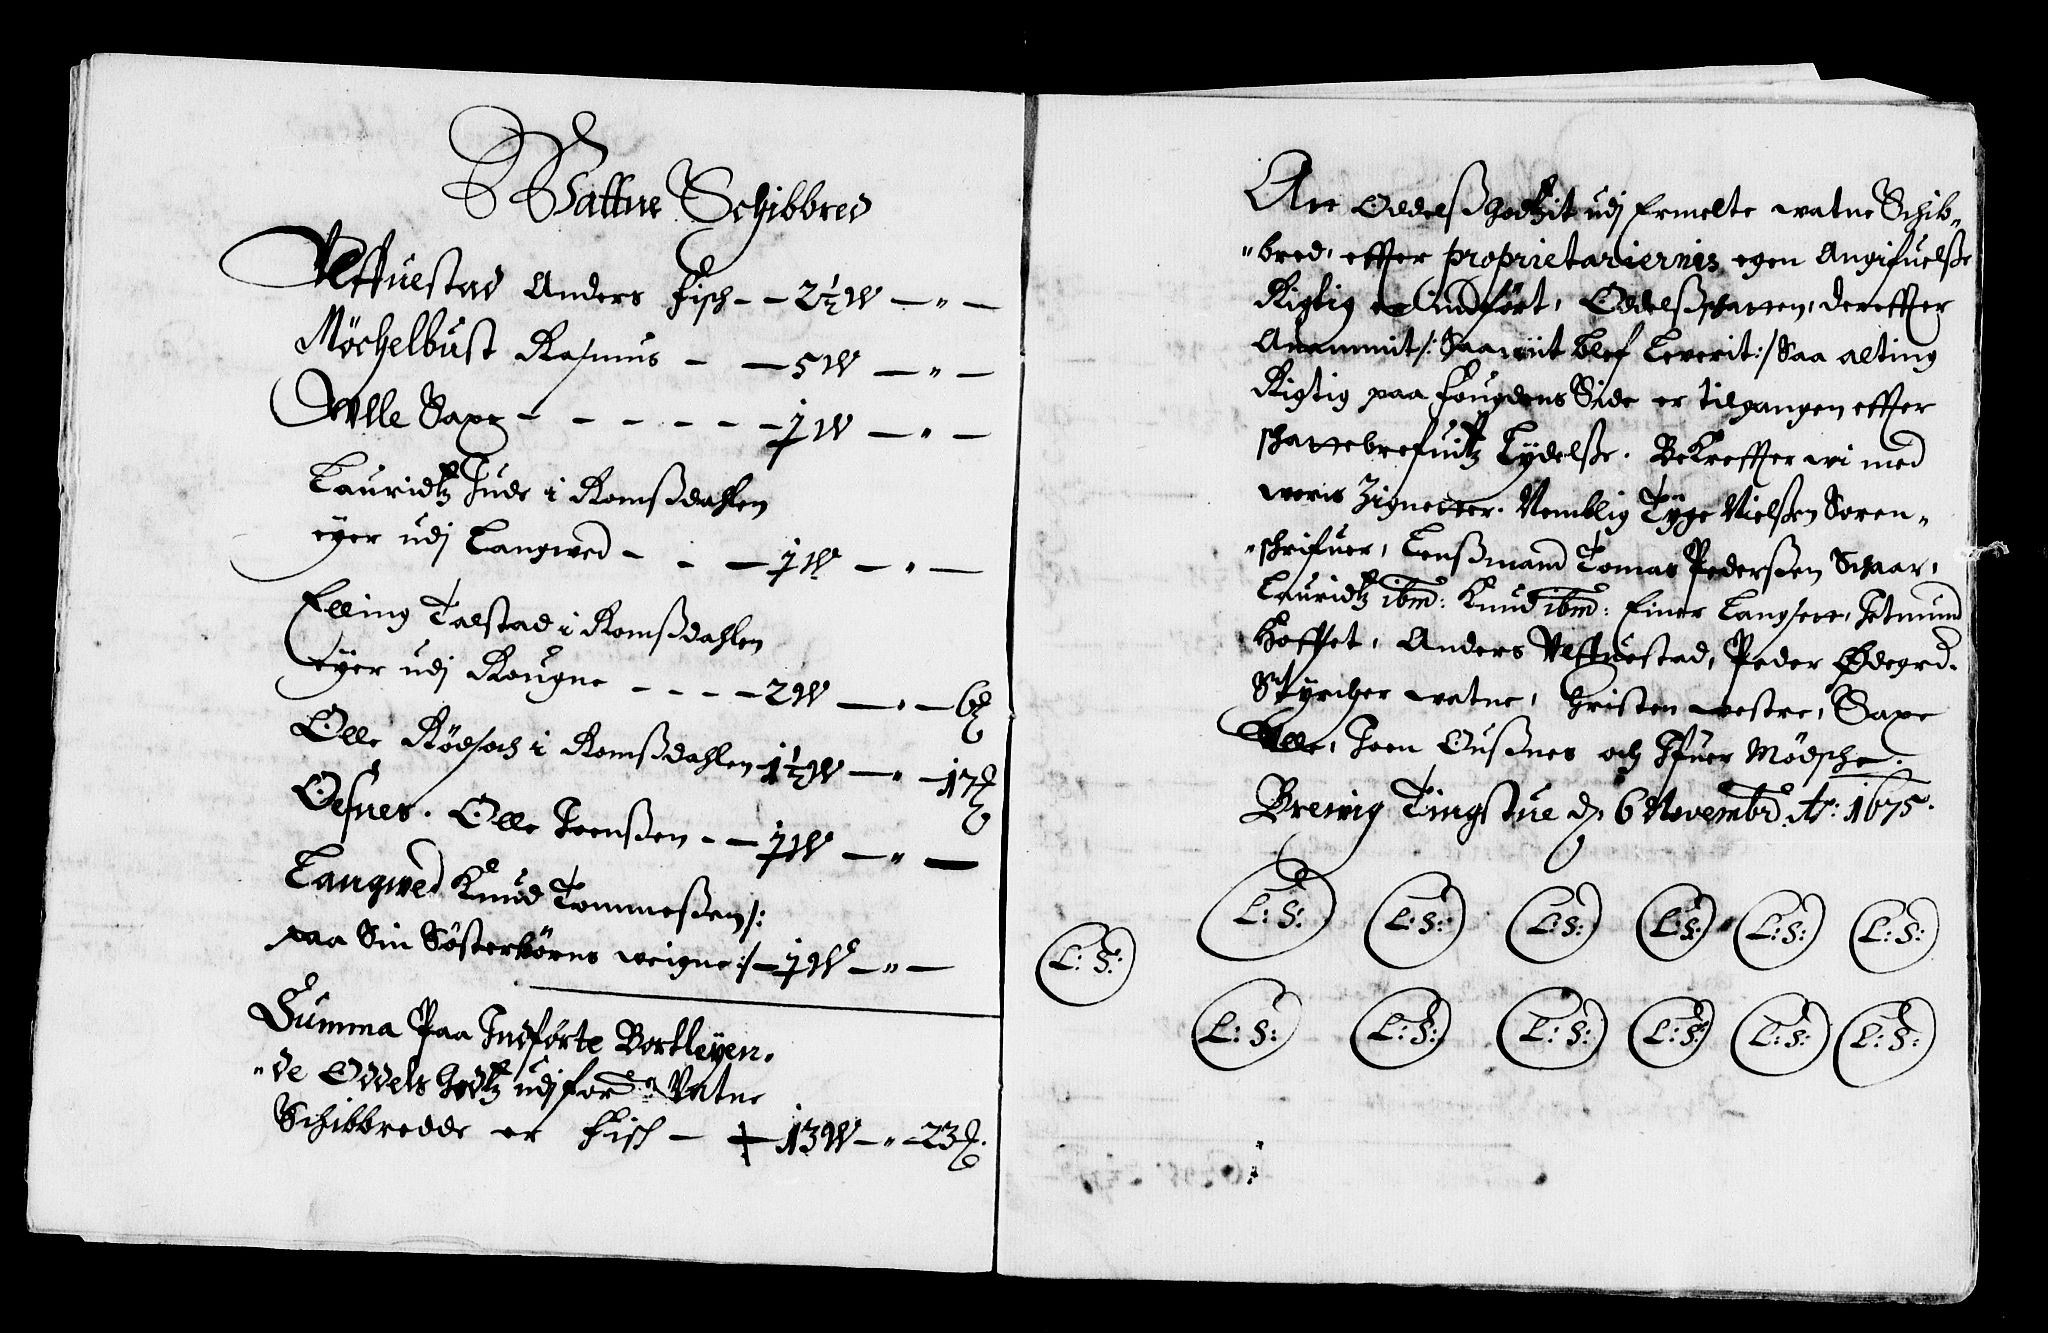 Wattne Schibbred
Ulffuestad Anders Fisch - - 2½ W — „ —
Möchelbust Rasmus - — 5 W — „ —
Wlle Saxe - - - - - - 1 W — „ —
Lauridtz Jude i Romßdahlen
eyer udj Langwed - - — 1 W — „ —
Elling Talstad i Romßdahlen
eyer udj Rougne - - - - 2 W — „ — 6 ℔
Olle Rödsach i Romßdahlen 1½ W — „ — 17 ℔
Oesnes. Olle Joenßen - - 1 W — „ —
Langwed Knud Tommeßen /:
paa Sin Sösterbörns weigne :/ - 1 W — „ —
Summa Paa Indförte Bortleyen-
„de Oddels Godtz udj ford: Vatne
Schibbredde er Fisch - — 13 W — „ - 23 ℔.
At Oddelßgodtzit udj Ermelte watne Schib„
„bred, effter proprietariernis egen Angifuelße
Rigtig er Indfört, Oddelßschatten, dereffter
Anammit /: Saawiit blef Leverit :/ Saa alting
Rigtig paa Fougdens Side er tilgangen effter
schattebrefuitz Lÿdelße. Bekreffter wi med
woris Zignetter. Nemblig Tÿge Nielßen Soren„
„schrifuer, Lenßmand Tomas Pederßen Schaar,
Lauridtz ibm: Knud ibm: Einer Langsett, Jetmund
Hoffset, Anders Ulffuestad, Peder Ødegrd.
Stÿrcher watne, Christen westre, Saxe
Ulle, Joen Oußnes och Ifuer Mödsche.
Brewig Tingstue d. 6 Novembr. Ao: 1675.
L: S: L: S: L: S: L: S: L: S: L: S:
L: S:
L: S: L: S: L: S: L: S: L: S: L: S: